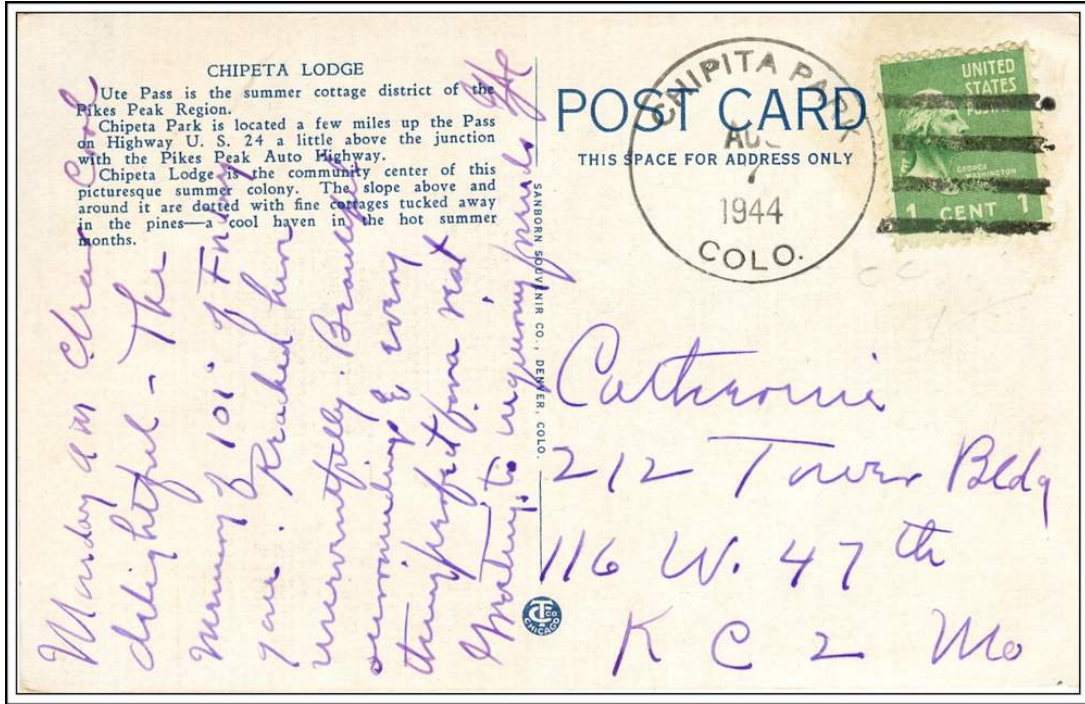 CHIPETA LODGE
Ute Pass is the summer cottage district of the
Pikes Peak Region.
Chipeta Park is located a few miles up the Pass
on Highway U. S. 24 a little above the junction
with the Pikes Peak Auto Highway.
Chipeta Lodge is the community center of this
picturesque summer colony. The slope above and
around it are dotted with fine cottages tucked away
in the pines—a cool haven in the hot summer
months.
Monday am Clear Cool
delightful - The
memory of 101° of Friday
gone. Reached here
uneventfully. Beautiful
surroundings & every
thing perfect for a rest
Greetings to inquiring friends
SANBORN SOUVENIR CO., DENVER, COLO.
CT CO
CHICAGO
POST CARD
THIS SPACE FOR ADDRESS ONLY
CHIPITA PARK
AUG
7
1944
COLO.
UNITED
STATES
POSTAGE
GEORGE
WASHINGTON
1 CENT 1
Catherine
212 Tower Bldg
116 W. 47th
K C 2 Mo